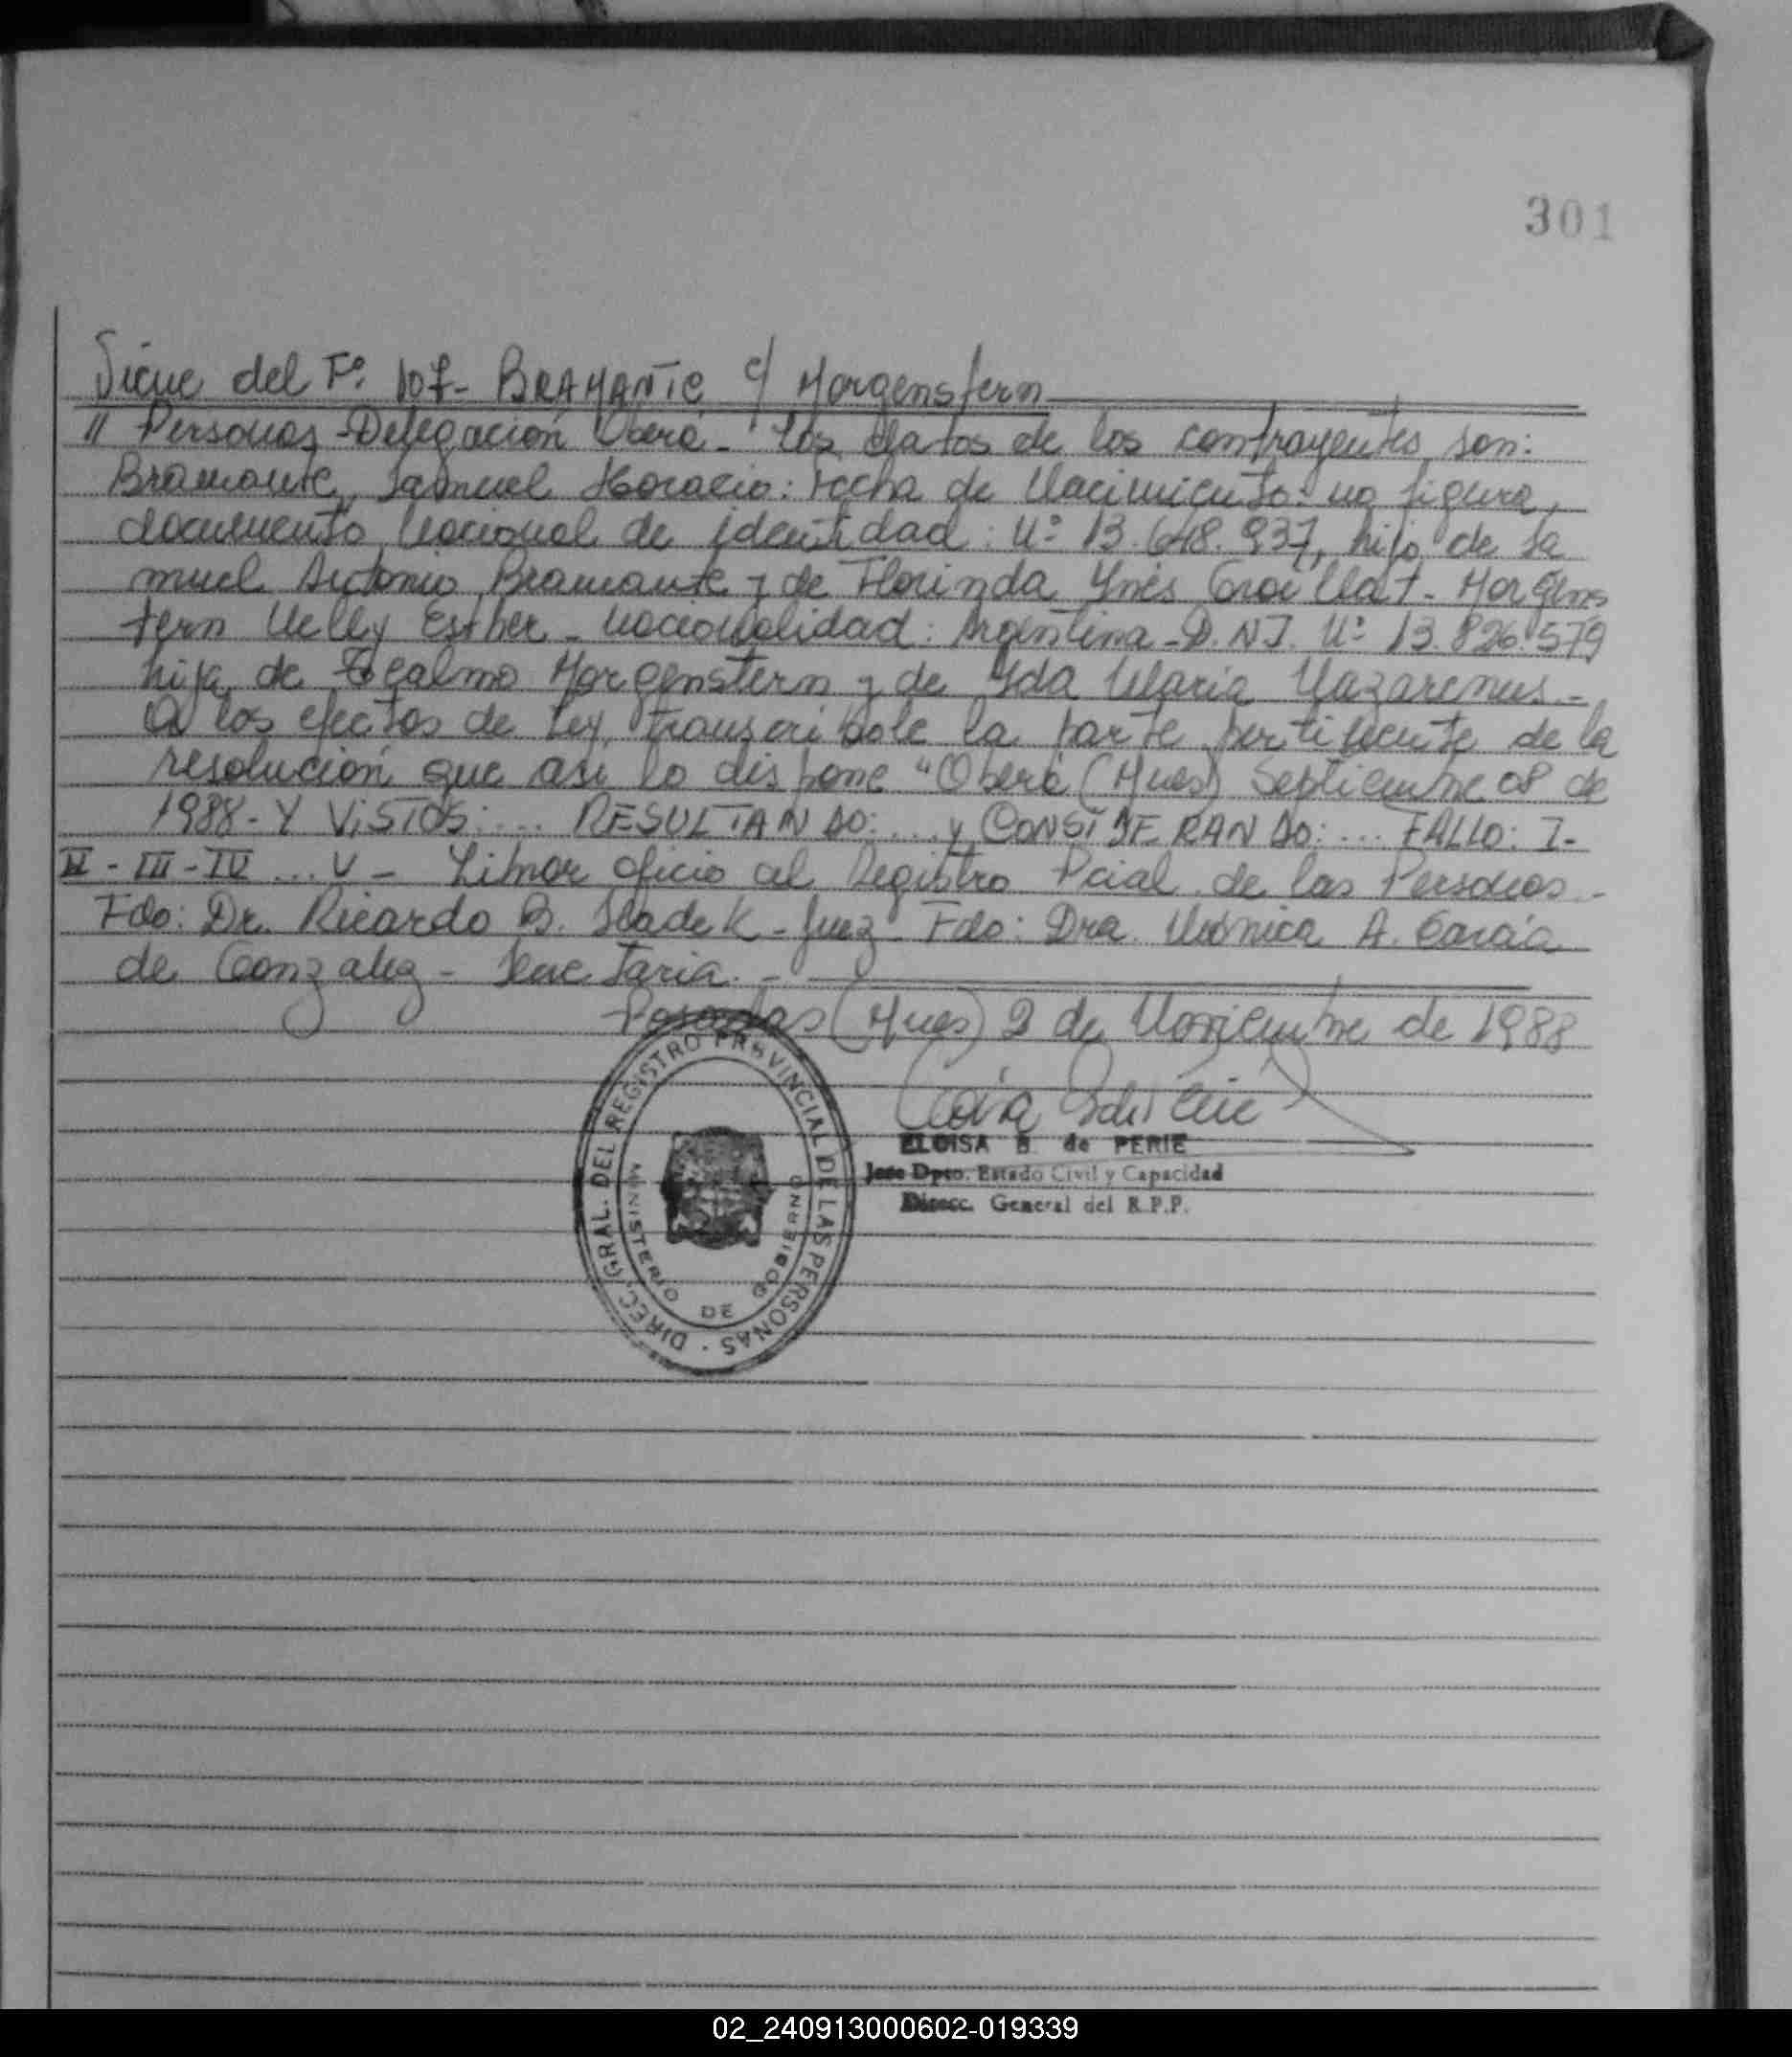 301
Sigue del Fº. 107- BRAMANTE c/ Morgenstern
" Personas - Delegación Oberá - Los datos de los contrayentes son:
Bramante, Samuel Horacio: Fecha de Nacimiento: no figura,
documento Nacional de identidad: Nº 13.648.937, hijo de Sa
muel Antonio Bramante y de Florinda Ynés - Morgens
tern Nelly Esther - nacionalidad: Argentina - D.N.I. Nº 13.826.579
hija de Morgenstern y de Yda Maria Nazarenus.-
A los efectos de Ley, transcribole la parte pertinente de la
resolución que asi lo dispone "Oberá (Mnes) Septiembre 08 de
1988- Y VISTOS: .... RESULTANDO: .... y CONSIDERANDO: .... FALLO: I-
II - III - IV ... V - Librar oficio al Registro Pcial. de las Personas.-
Fdo: Dr. Ricardo B. Sladek - Juez - Fdo: Dra. Mónica A. García
de Gonzalez - Secretaria. -
Posadas (Mnes) 2 de Noviembre de 1988
DIREC. GRAL. DEL REGISTRO PROVINCIAL DE LAS PERSONAS
MINISTERIO DE GOBIERNO
ELOISA B. de PERIE
Jefe Dpto. Estado Civil y Capacidad
Direcc. General del R.P.P.
02_240913000602-019339